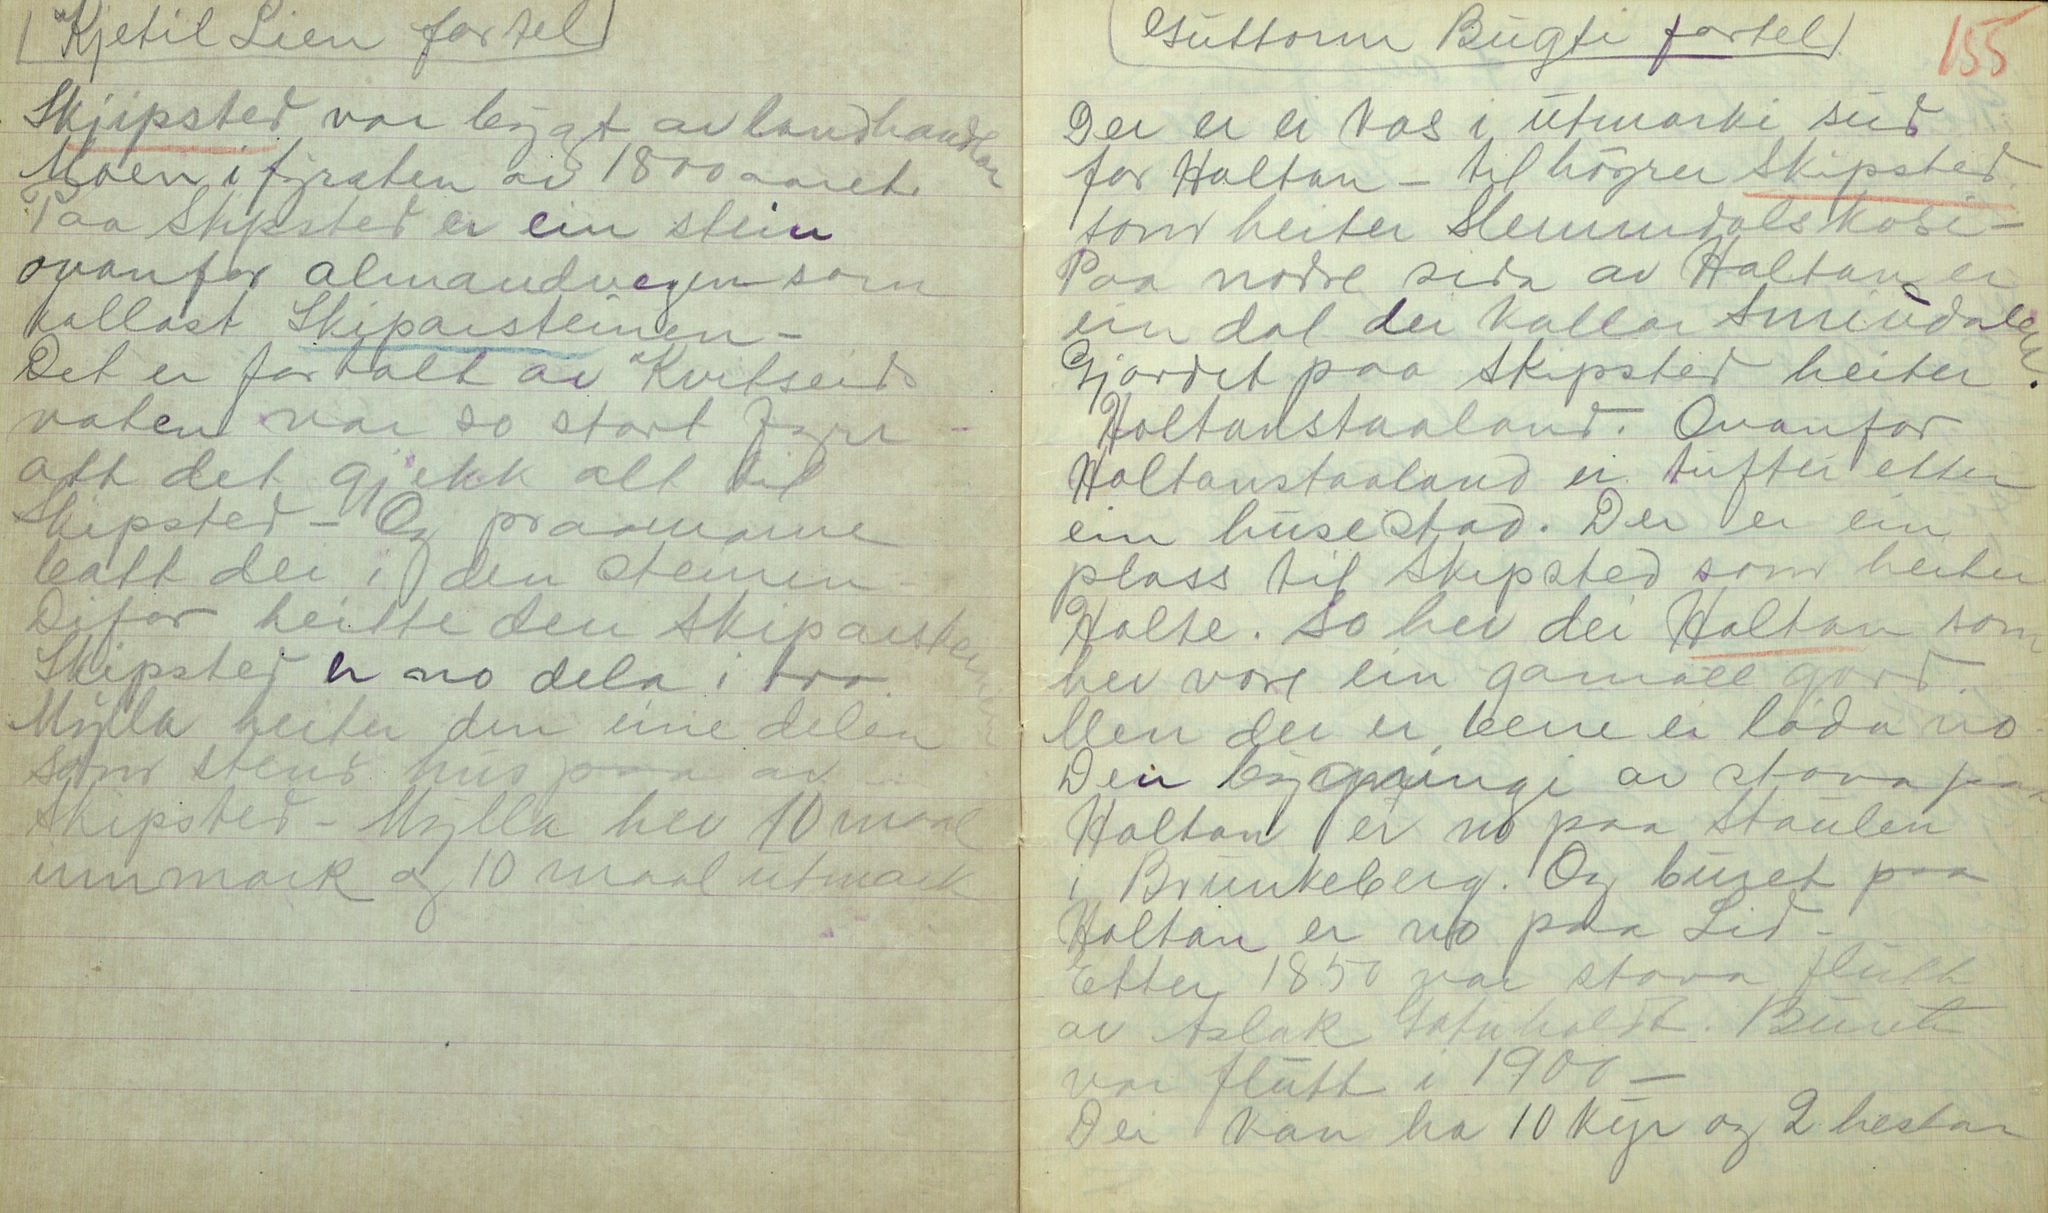 Kjetil Lien fortel
Skjipsted var bygt av landhandlar
Moen i fyrsten av 1800 aaret.
Paa Skipsted er ein stein
ovanfor almandvegen som
kallast Skiparsteinen –
Det er fortalt av Kvitseids
vaten var so stort fyrr –
att det gjekk alt til
Skipsted – Og praamarne
batt dei i den steinen –
Difor heitte den Skiparsteinen
Skipsted er no dela i tvo.
Mylla heiter den eine delen
som stend hus paa av
Skipsted – Mylla hev 10 maal
innmark og 10 maal utmark
Guttorm Bugti fortel
155
Der er ei kos i utmarki sud
for Holtan – til högrer Skipsted.
som heiter Slemmdalskosi –
Paa nodre sida av Holtan er
ein dal dei kallar Smiudalen.
Gjordet paa Skipsted heiter
Holtanstaaland. Ovanfor
Holtanstaaland er tufter etter
ein husestad. Der er ein
plass til Skipsted som heiter
Holte. So hev dei Holtan som
hev vore ein gamall gard.
Men der er berre ei löda no.
Den bygningi av stova paa
Holtan er no paa Staulen
i Brunkeberg. Og buret paa
Holtan er no paa Lid –
Etter 1850 var stova flutt
av Aslak Gatuholdt. Buret
var flutt i 1900 –
Dei kan ha 10 kyr og 2 hestar